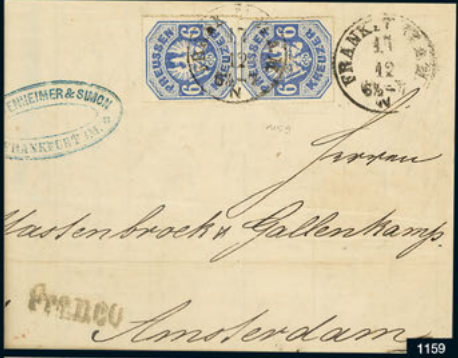 PREUSSEN 9 KREUZER
PREUSSEN 9 KREUZER
12
N
FRANKFURT A. M.
11
12
6½-7
N
ENHEIMER & SIMON
FRANKFURT A/M.
Herren
Hassenbroek & Gallenkamp.
Franco
Amsterdam
1159